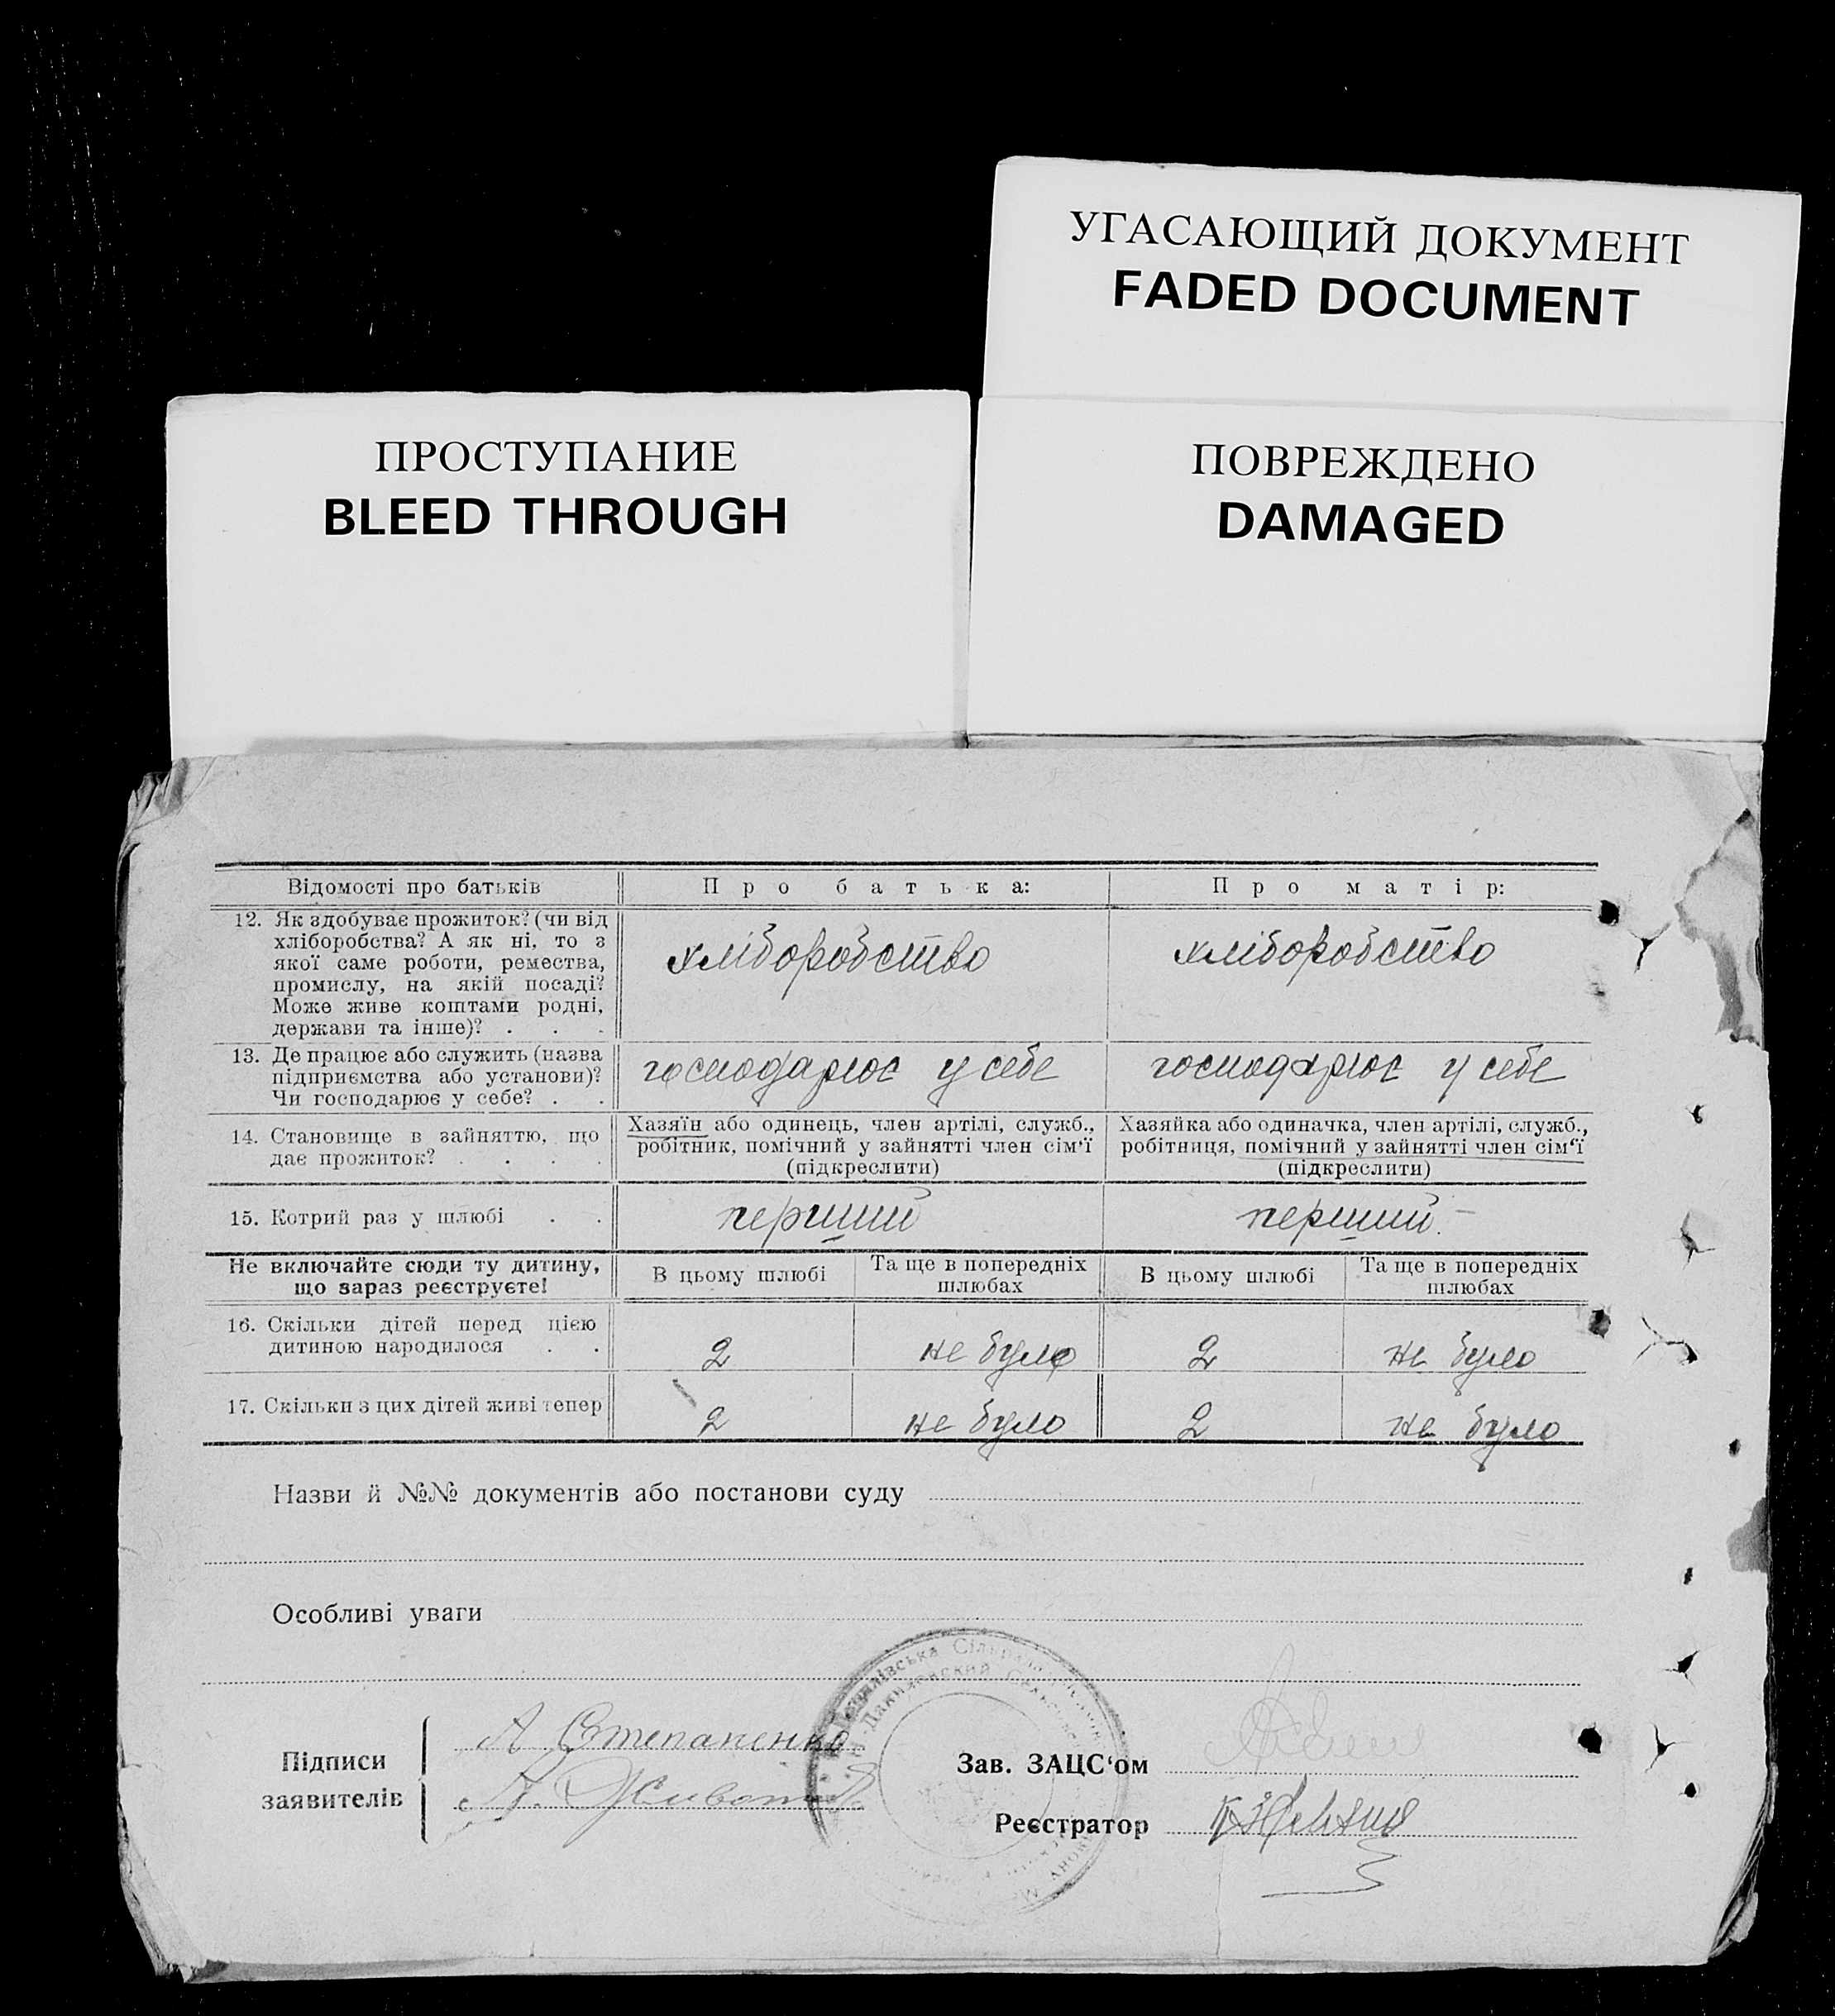 УГАСАЮЩИЙ ДОКУМЕНТ
FADED DOCUMENT
ПРОСТУПАНИЕ
BLEED THROUGH
ПОВРЕЖДЕНО
DAMAGED
Відомості про батьків
Про батька:
Про матір:
12. Як здобуває прожиток? (чи від
хліборобства? А як ні, то з
якої саме роботи, ремества,
промислу, на якій посаді?
Може живе коштами родні,
держави та інше)? . . .
хліборобство
хліборобство
13. Де працює або служить (назва
підприємства або установи)?
Чи господарює у себе? . .
господарює у себе
господарює у себе
14. Становище в зайняттю, що
дає прожиток? . . . .
Хазяїн або одинець, член артілі, служб.,
робітник, помічний у зайнятті член сім'ї
(підкреслити)
Хазяйка або одиначка, член артілі, служб.,
робітниця, помічний у зайнятті член сім'ї
(підкреслити)
15. Котрий раз у шлюбі . .
перший
перший
Не включайте сюди ту дитину,
що зараз реєструєте!
В цьому шлюбі
Та ще в попередніх
шлюбах
В цьому шлюбі
Та ще в попередніх
шлюбах
16. Скільки дітей перед цією
дитиною народилося . .
2
не було
2
не було
17. Скільки з цих дітей живі тепер
2
не було
2
не було
Назви й №№ документів або постанови суду
Особливі уваги
Підписи
заявителів
А Степаненко
Зав. ЗАЦС'ом
Реєстратор